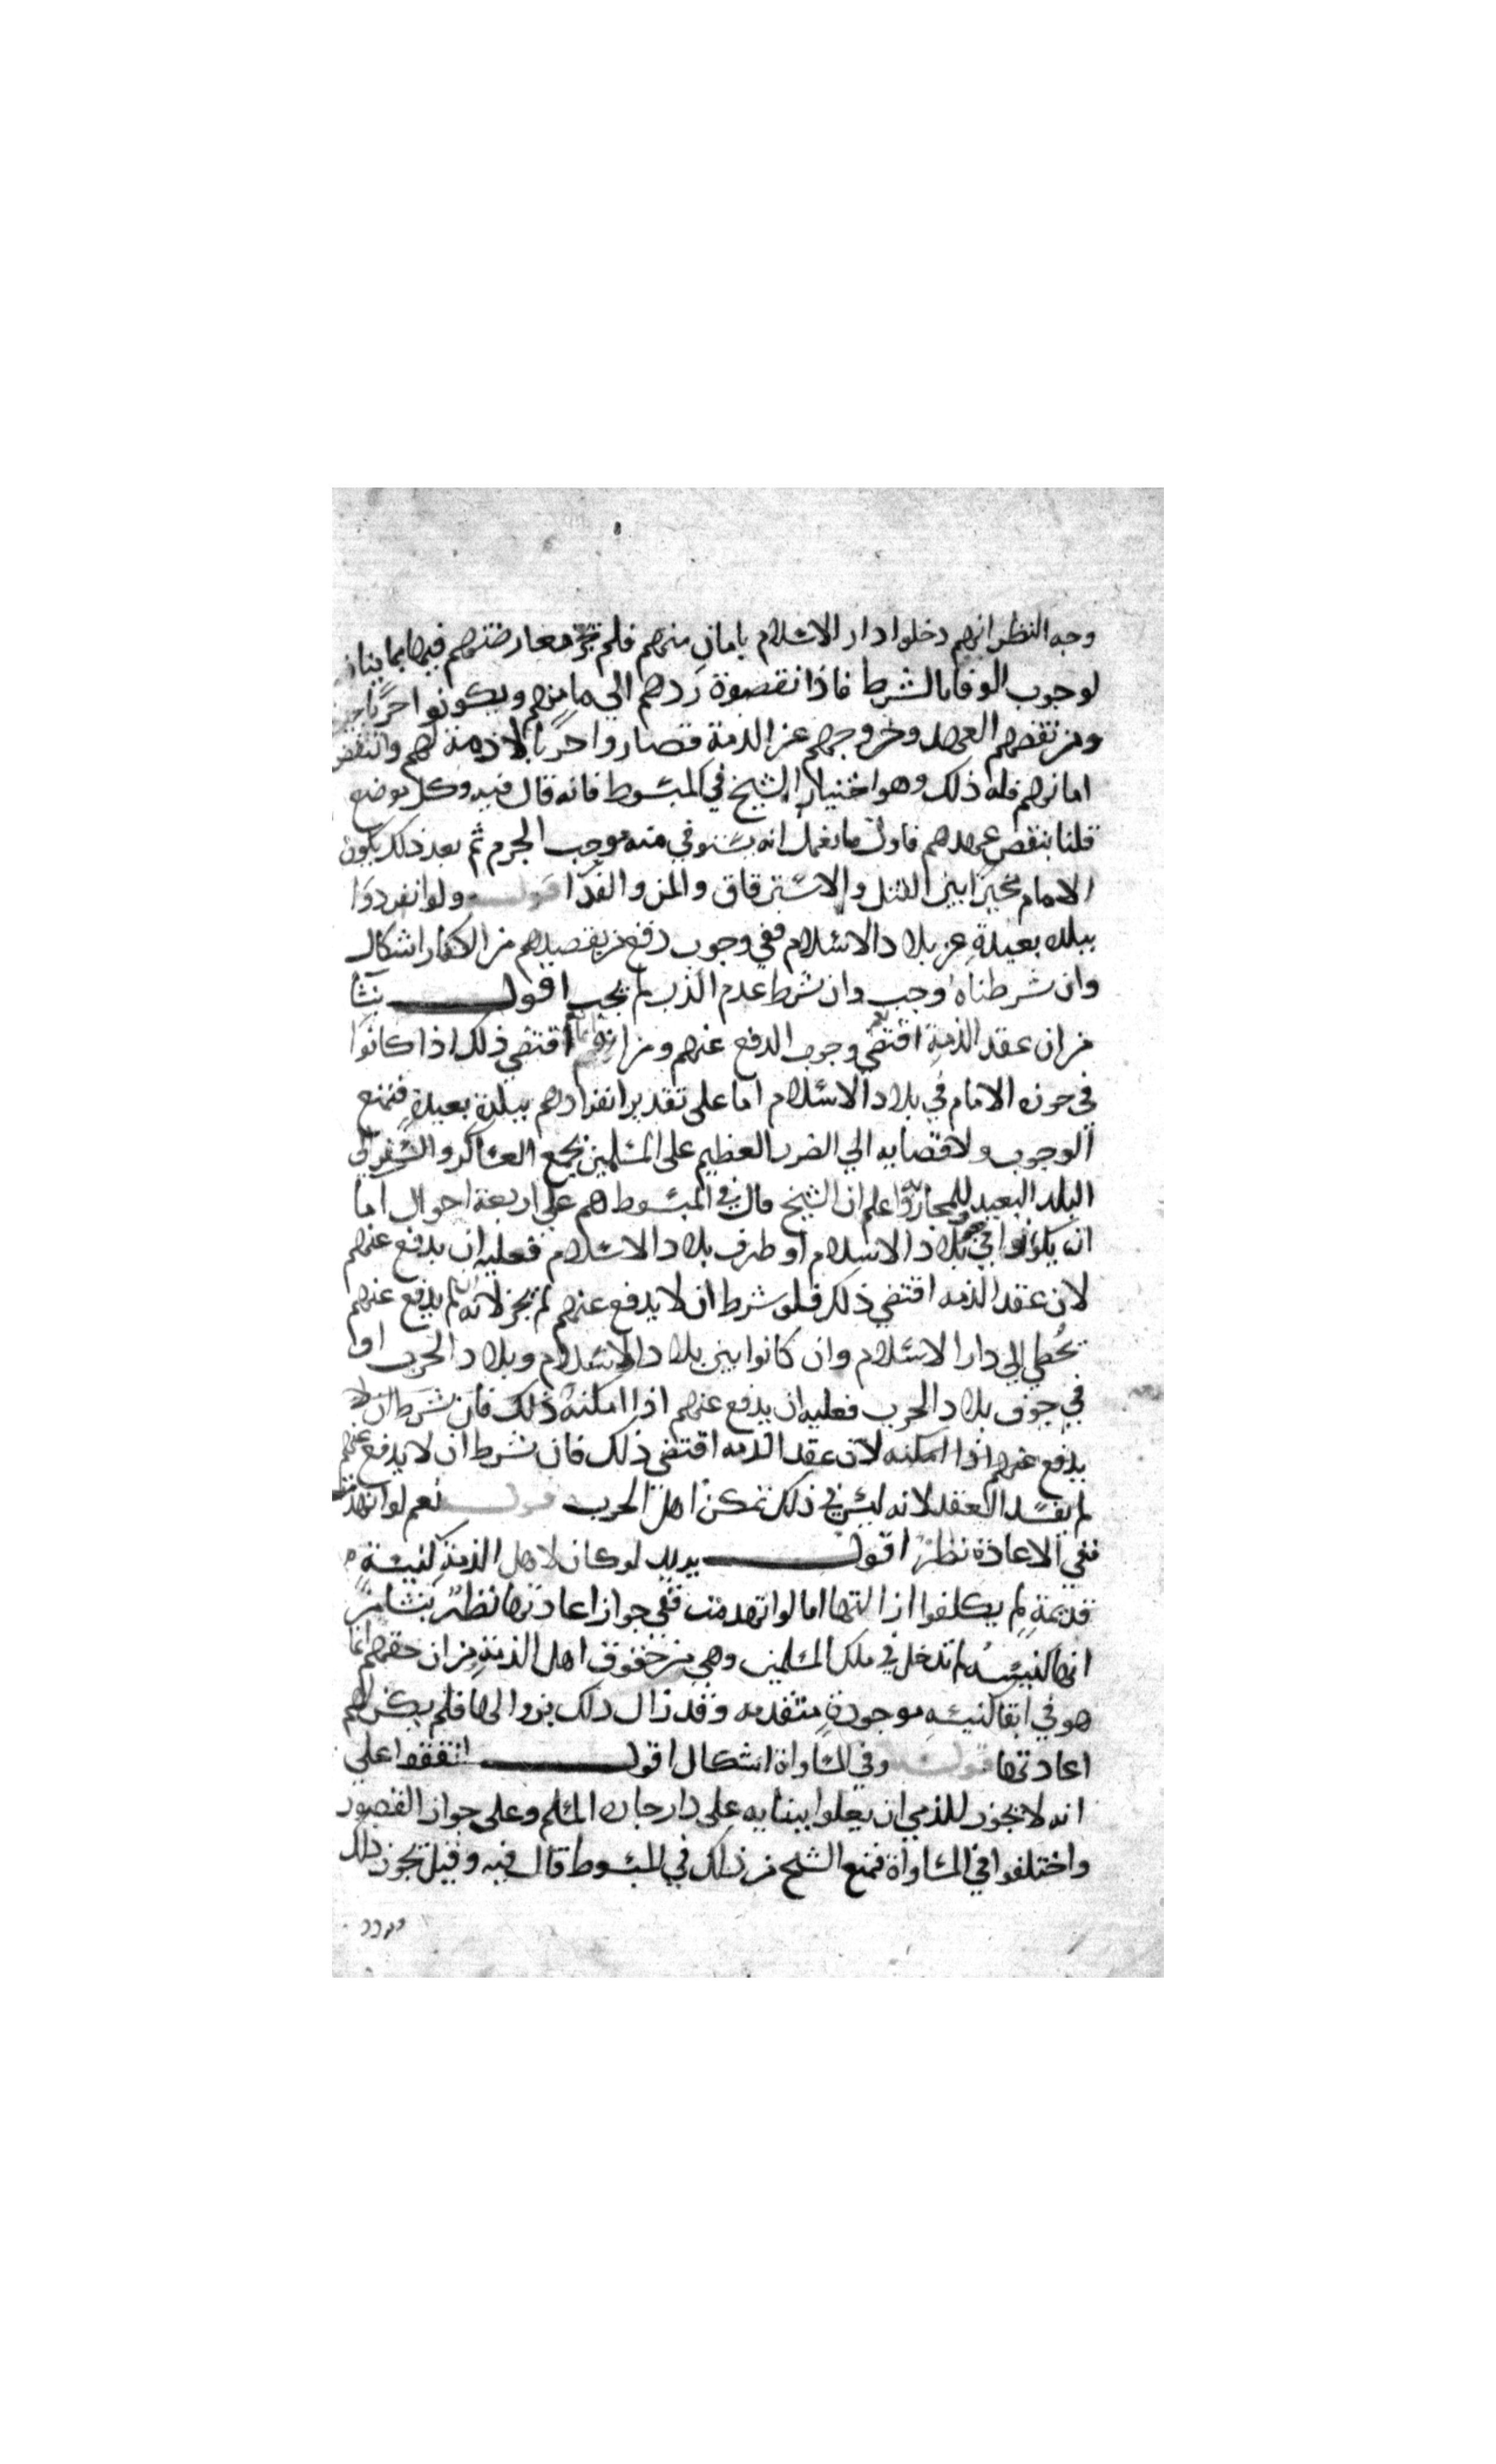 وجه النظر انهم دخلوا دار الاسلام بامان منهم فلم تجز معارضتهم فيها بما ينافي
لوجوب الوفا بالشرط فاذا نقضوة ردهم الي مامنهم ويكونوا حربًا
ومن نقضهم العهد وخروجهم عن الذمة فصاروا حربًا لا ذمة لهم وانتقض
امانهم فله ذلك وهو اختيار الشيخ في المبسوط فانه قال فيه وكل موضع
قلنا ينقض عهدهم فاول ما يعمل انه يستوفي منه موجب الجرم ثم بعد ذلك يكون
الامام مخيرًا بين القتل والاسترقاق والمن والفدا قوله ولو انفردوا
ببلده بعيدةٍ عن بلاد الاسلام ففي وجوب دفع من يقصدهم من الكفار اشكال
وان شرطناه وجب وان شرط عدم الذب لم يجب اقول ينشأ
من ان عقد الذمة اقتضي وجوب الدفع عنهم ومن انه انما اقتضي ذلك اذا كانوا
في حوزه الامام في بلاد الاسلام اما على تقدير انفرادهم ببلدة بعيدة فنمنع
الوجوب ولافضايه الي الضرر العظيم على المسلمين بجمع العساكر والسفر الي
البلد البعيد للمحاربه واعلم ان الشيخ قال في المبسوط هم علي اربعة احوال اما
ان يكونوا في جوف بلاد الاسلام او طرف بلاد الاسلام فعليه ان يدفع عنهم
لان عقد الذمه اقتضي ذلك فلو شرط ان لا يدفع عنهم لم يجز لانه ان لم يدفع عنهم
تخطي الي دار الاسلام وان كانوا بين بلاد الاسلام وبلاد الحرب او
في جوف بلاد الحرب فعليه ان يدفع عنهم اذا امكنه ذلك فان شرط ان لا
يدفع عنهم اذا امكنه لان عقد الذمه اقتضي ذلك فان شرط ان لا يدفع عنهم
لم يفسد العقد لانه ليس في ذلك تمكن اهل الحرب قوله نعم لو انهدمت
ففي الاعادة نظر اقول يريد لو كان لاهل الذمة كنيسة
قديمة لم يكلفوا ازالتها اما لو انهدمت ففي جواز اعادتها نظر ينشا من
انها كنيسه لم تدخل في ملك المسلمين وهي من حقوق اهل الذمة ومن ان حقهم انما
هو في ابقا كنيسه موجودةٍ متقدمه وقد زال ذلك بزوالها فلم يكن لهم
اعادتها قوله وفي المساواة اشكال اقول اتفقوا علي
انه لا يجوز للذمي ان يعلوا ببنايه علي دار جاره المسلم وعلى جواز القصور
واختلفوا في المساواة فمنع الشيخ من ذلك في المبسوط قال فيه وقيل يجوز ذلك